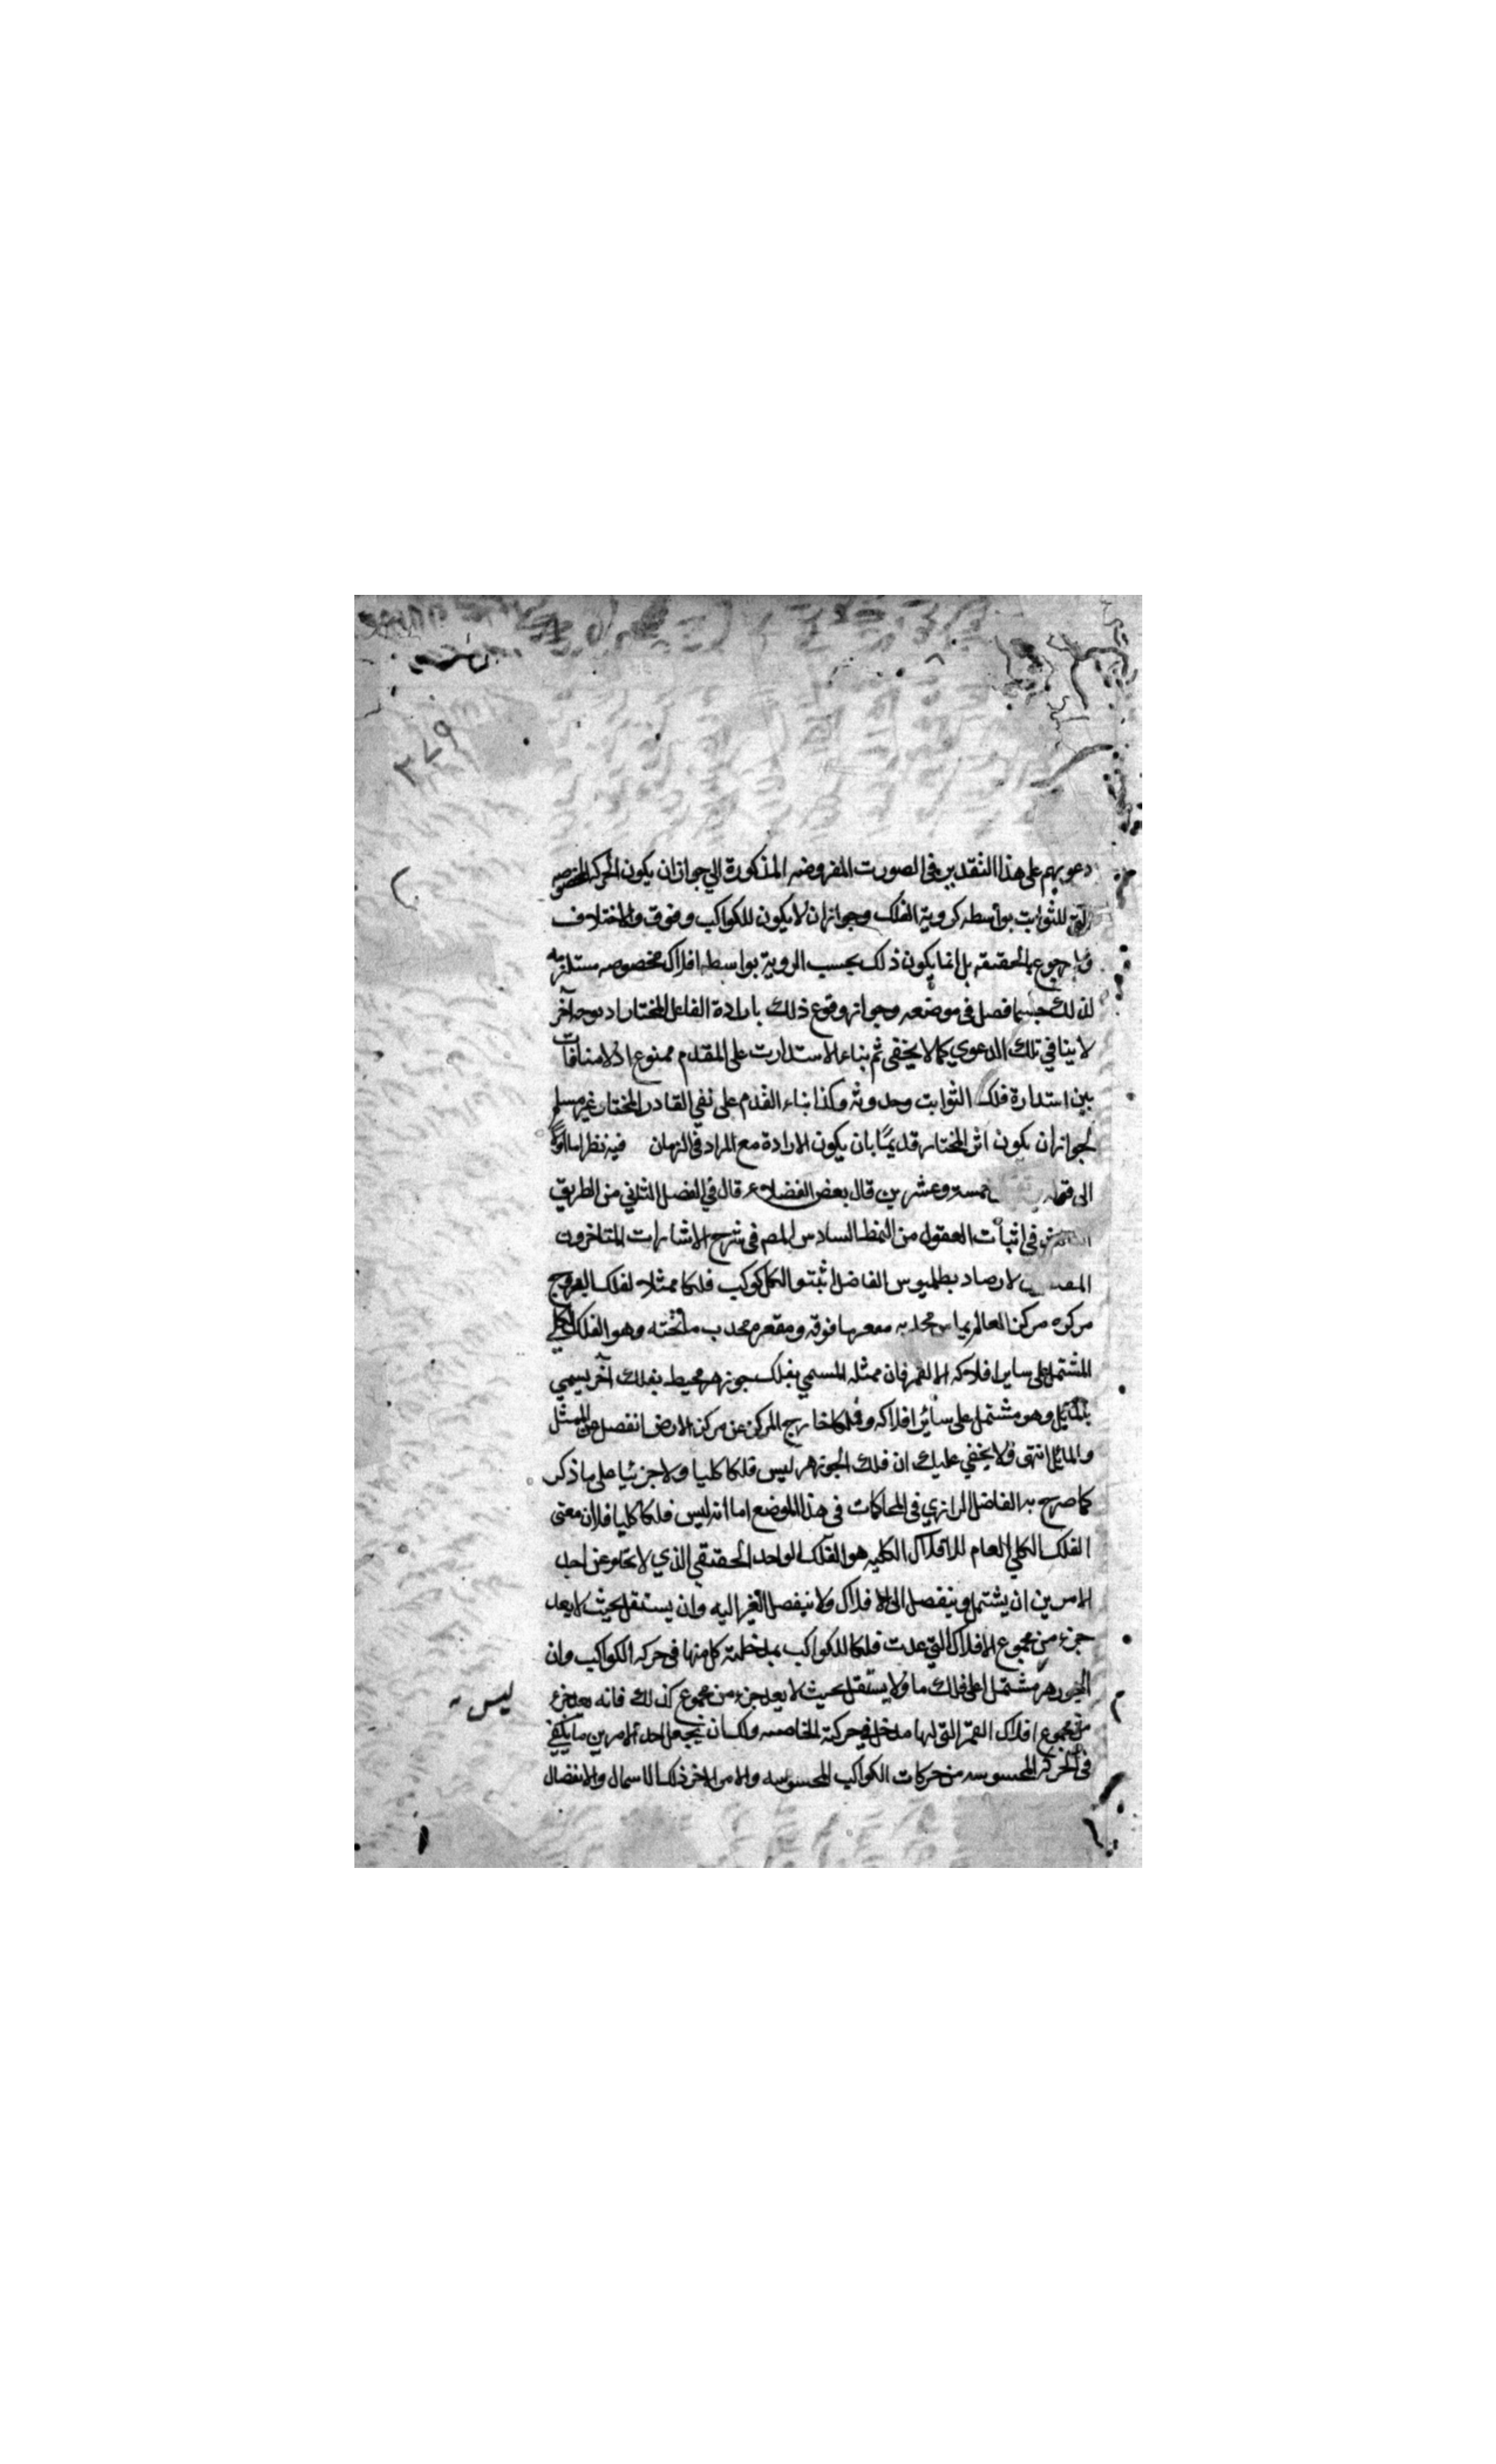 ٢٧٩
دعويهم على هذا التقدير في الصورت المفروضه المذكورة الي جواز ان يكون الحركه المخصوصه
للثوابت بواسطه كروية الفلك وجواز ان لا يكون للكواكب وقوف والاختلاف
ولا رجوع بالحقيقه بل انما يكون ذلك بحسب الروية بواسطه افلاك مخصوصه مستلزمه
لذلك حسبما فصل في موضعه وجواز وقوع ذلك بارادة الفاعل المختار اد بوجه آخر
لا ينافي تلك الدعوي كما لا يخفى ثم بناء الاستدارت على المقدم ممنوع اذ لا منافات
بين استدارة فلك الثوابت وحدوثه وكذا بناء القدم على نفي القادر المختار غير مسلم
لجواز ان يكون اثر المختار قديمًا بان يكون الارادة مع المراد في الزمان فيه نظر اما اولا
الى خمسة وعشرين قال بعض الفضلاء قال في الفصل الثاني من الطريق
في اثبات العقول من النمط السادس المص في شرح الاشارات المتاخرون
لارصاد بطلميوس الفاضل اثبتوا لكل كوكب فلكا ممثلا لفلك البروج
مركزه مركز العالم يماس محدبه مقعر ما فوقه ومقعره محدب ما تحته وهو الفلك الكلي
المشتمل على ساير افلاكه الا القمر فان ممثله المسمي بفلك جوزهر محيط بفلك آخر يسمي
بالمائل وهو مشتمل على سائر افلاكه وفلكا خارج المركز عن مركز الارض انفصل عن الممثل
والمائل انتهى ولا يخفي عليك ان فلك الجوزهر ليس فلكا كليا ولا جزئيا على ما ذكر
كما صرح به الفاضل الرازي في المحاكمات في هذا الموضع اما انه ليس فلكا كليا فلان معنى
الفلك الكلي العام للافلاك الكليه هو الفلك الواحد الحقيقي الذي لا يخلو عن احد
الامرين ان يشتمل وينفصل الى الافلاك ولا ينفصل الغير اليه وان يستقل بحيث لا يعد
جزء من مجموع الافلاك التي عدت فلكا للكواكب بمدخلية كل منها في حركه الكواكب وان
الجوزهر مشتمل اعلى فلك ما ولا يستقل بحيث لا يعد جزء من مجموع كذلك فانه يعد جزء
ليس
من مجموع افلاك القمر التي لها مدخل في حركته الخاصه ولك ان تجعل احد الامرين ما يكفي
في الحركه المحسوسه من حركات الكواكب المحسوسه والامر الاخر ذلك الاشمال والانفصال